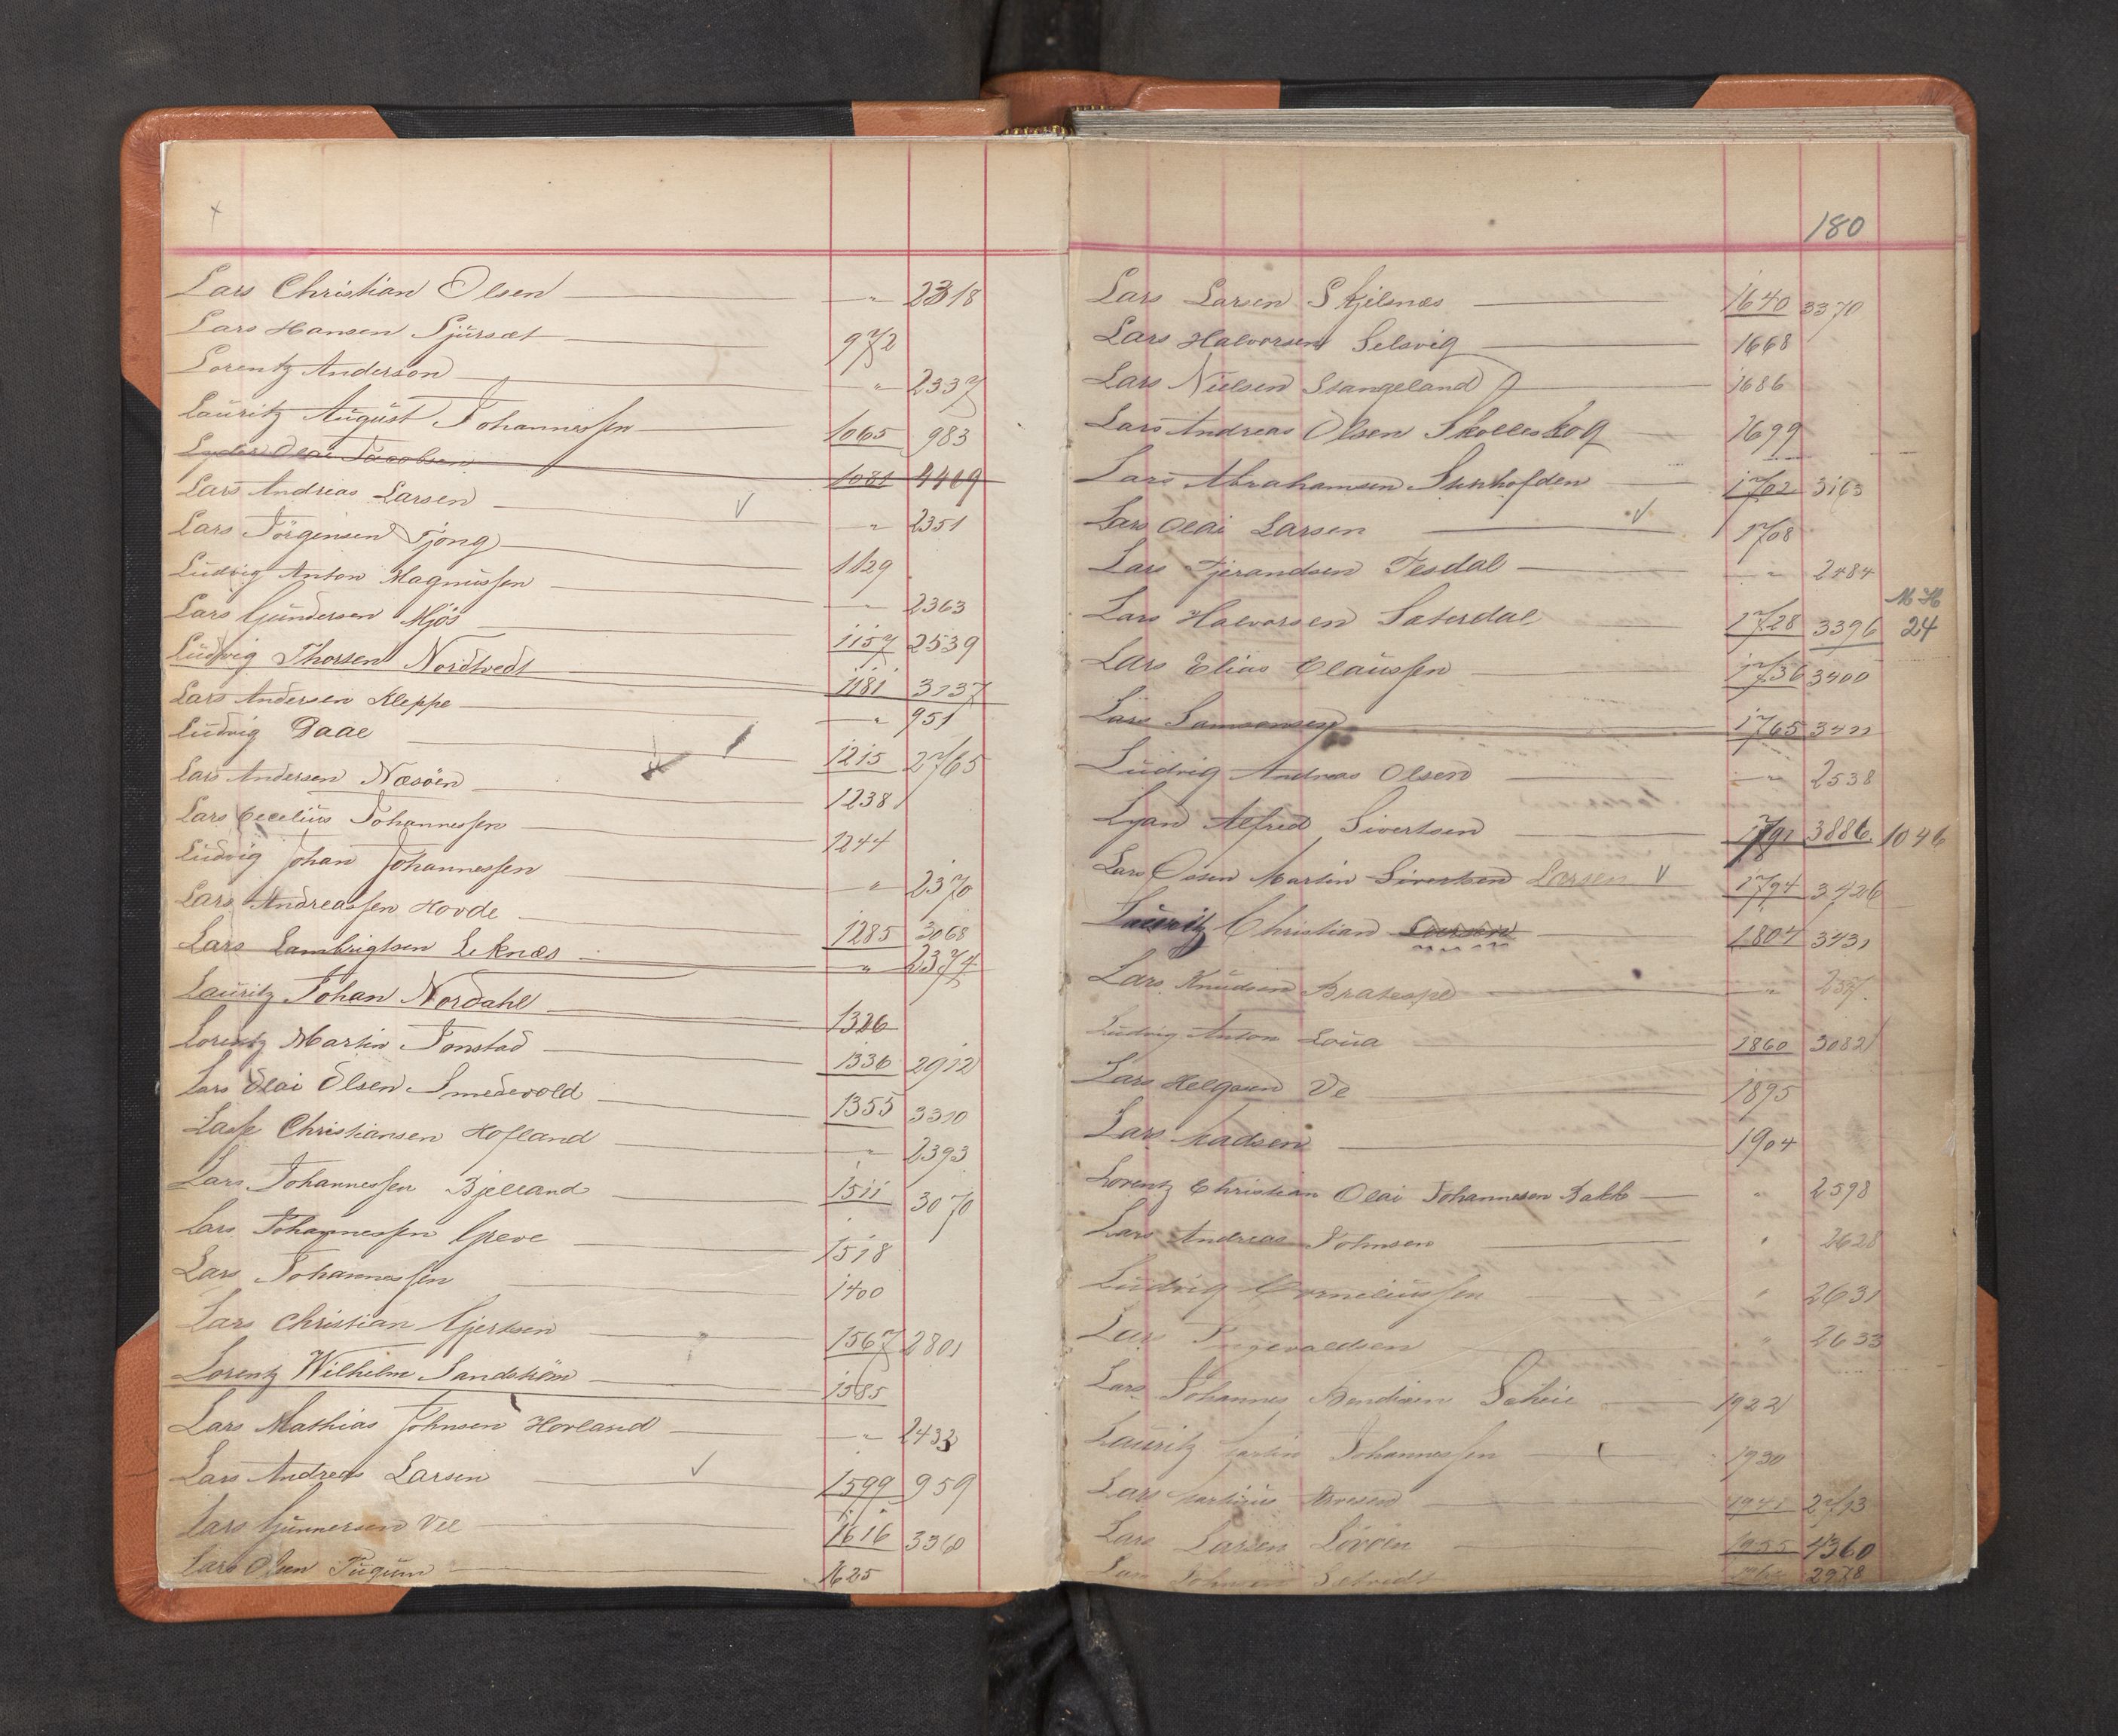 Lars Christian Olsen — " 2318
Lars Hansen Sjürsæt — 972
Lorentz Anderson — " 2337
Lauritz August Johannessen — 1065 983
Lyder Olai Jacobsen 1081 4419
Lars Andreas Larsen — V " 2351
Lars Jörgensen Tjong — 1129
Ludvig Anton Magnussen — " 2363
Lars Gundersen Mjös — 1157 2539
Ludvig Thorsen Nordtvedt — 1181 3137
Lars Andersen Kleppe — " 951
Ludvig Daae — 1215 2765
Lars Andersen Næsöen — 1238
Lars Cecelius Johannessen — 1244
Ludvig Johan Johannessen — " 2370
Lars Andreassen Hovde — 1285 3068
Lars Lambrigtsen Leknæs — " 2374
Lauritz Johan Nordahl — 1326
Lorentz Martin Tonstad — 1336 2912
Lars Olai Olsen Smedevold — 1355 3310
Lasse Christiansen Hofland — " 2393
Lars Johannessen Bjelland — 1511 3070
Lars Johannessen Greve — 1518
Lars Johannessen — 1400
Lars Christian Gjertsen — 1567 2801
Lorentz Wilhelm Sandström — 1585
Lars Mathias Johnsen Hovland — " 2433
Lars Andreas Larsen — V 1599 959
Lars Gunnersen Vee — 1616 3360
Lars Olsen Tugum — 1625
180
Lars Larsen Skjelnæs — 1640 3370
Lars Halvorsen Selsvig — 1668
Lars Nielsen Stangeland — 1686
Lars Andreas Olsen Skolleskog — 1699
Lars Abrahamsen — 1702 3163
Lars Olai Larsen — V 1708
Lars Tjerandsen Tesdal — " 2484
M H
Lars Halvorsen Sæterdal — 1728 3396 24
Lars Elias Claussen — 1736 3400
Lars Samsonsen 1765 3421
Ludvig Andreas Olsen — " 2538
Alfred Sivertsen — 1791 3886 1046
Lars Martin Sivertsen Larsen V 1794 3426
Lauritz Christian — 1804 3431
Lars Knudsen Bratespe — " 257
Ludvig Anton Loua — 1860 3082
Lars Helgesen Ve — 1895
Lars Madsen — 1904
Lorentz Christian Olai Johannesen Bakke — " 2598
Lars Andreas Johnsen — " 2628
Ludvig Corneliussen — " 2631
Lars Ingevaldsen — " 2633
Lars Johannes Bendixen Scheie — 1922
Lauritz Martin Johannessen — 1930
Lars Martinus — 1941 2713
Lars Larsen — 1955 4360
Lars 2978